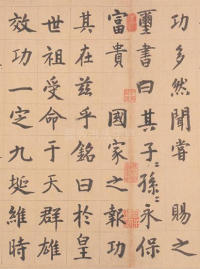 功多然聞嘗賜之
璽書曰其子〻孫〻永保
富貴國家之報功
其在茲乎銘曰於皇
世祖受命于天群雄
效功一定九埏維時